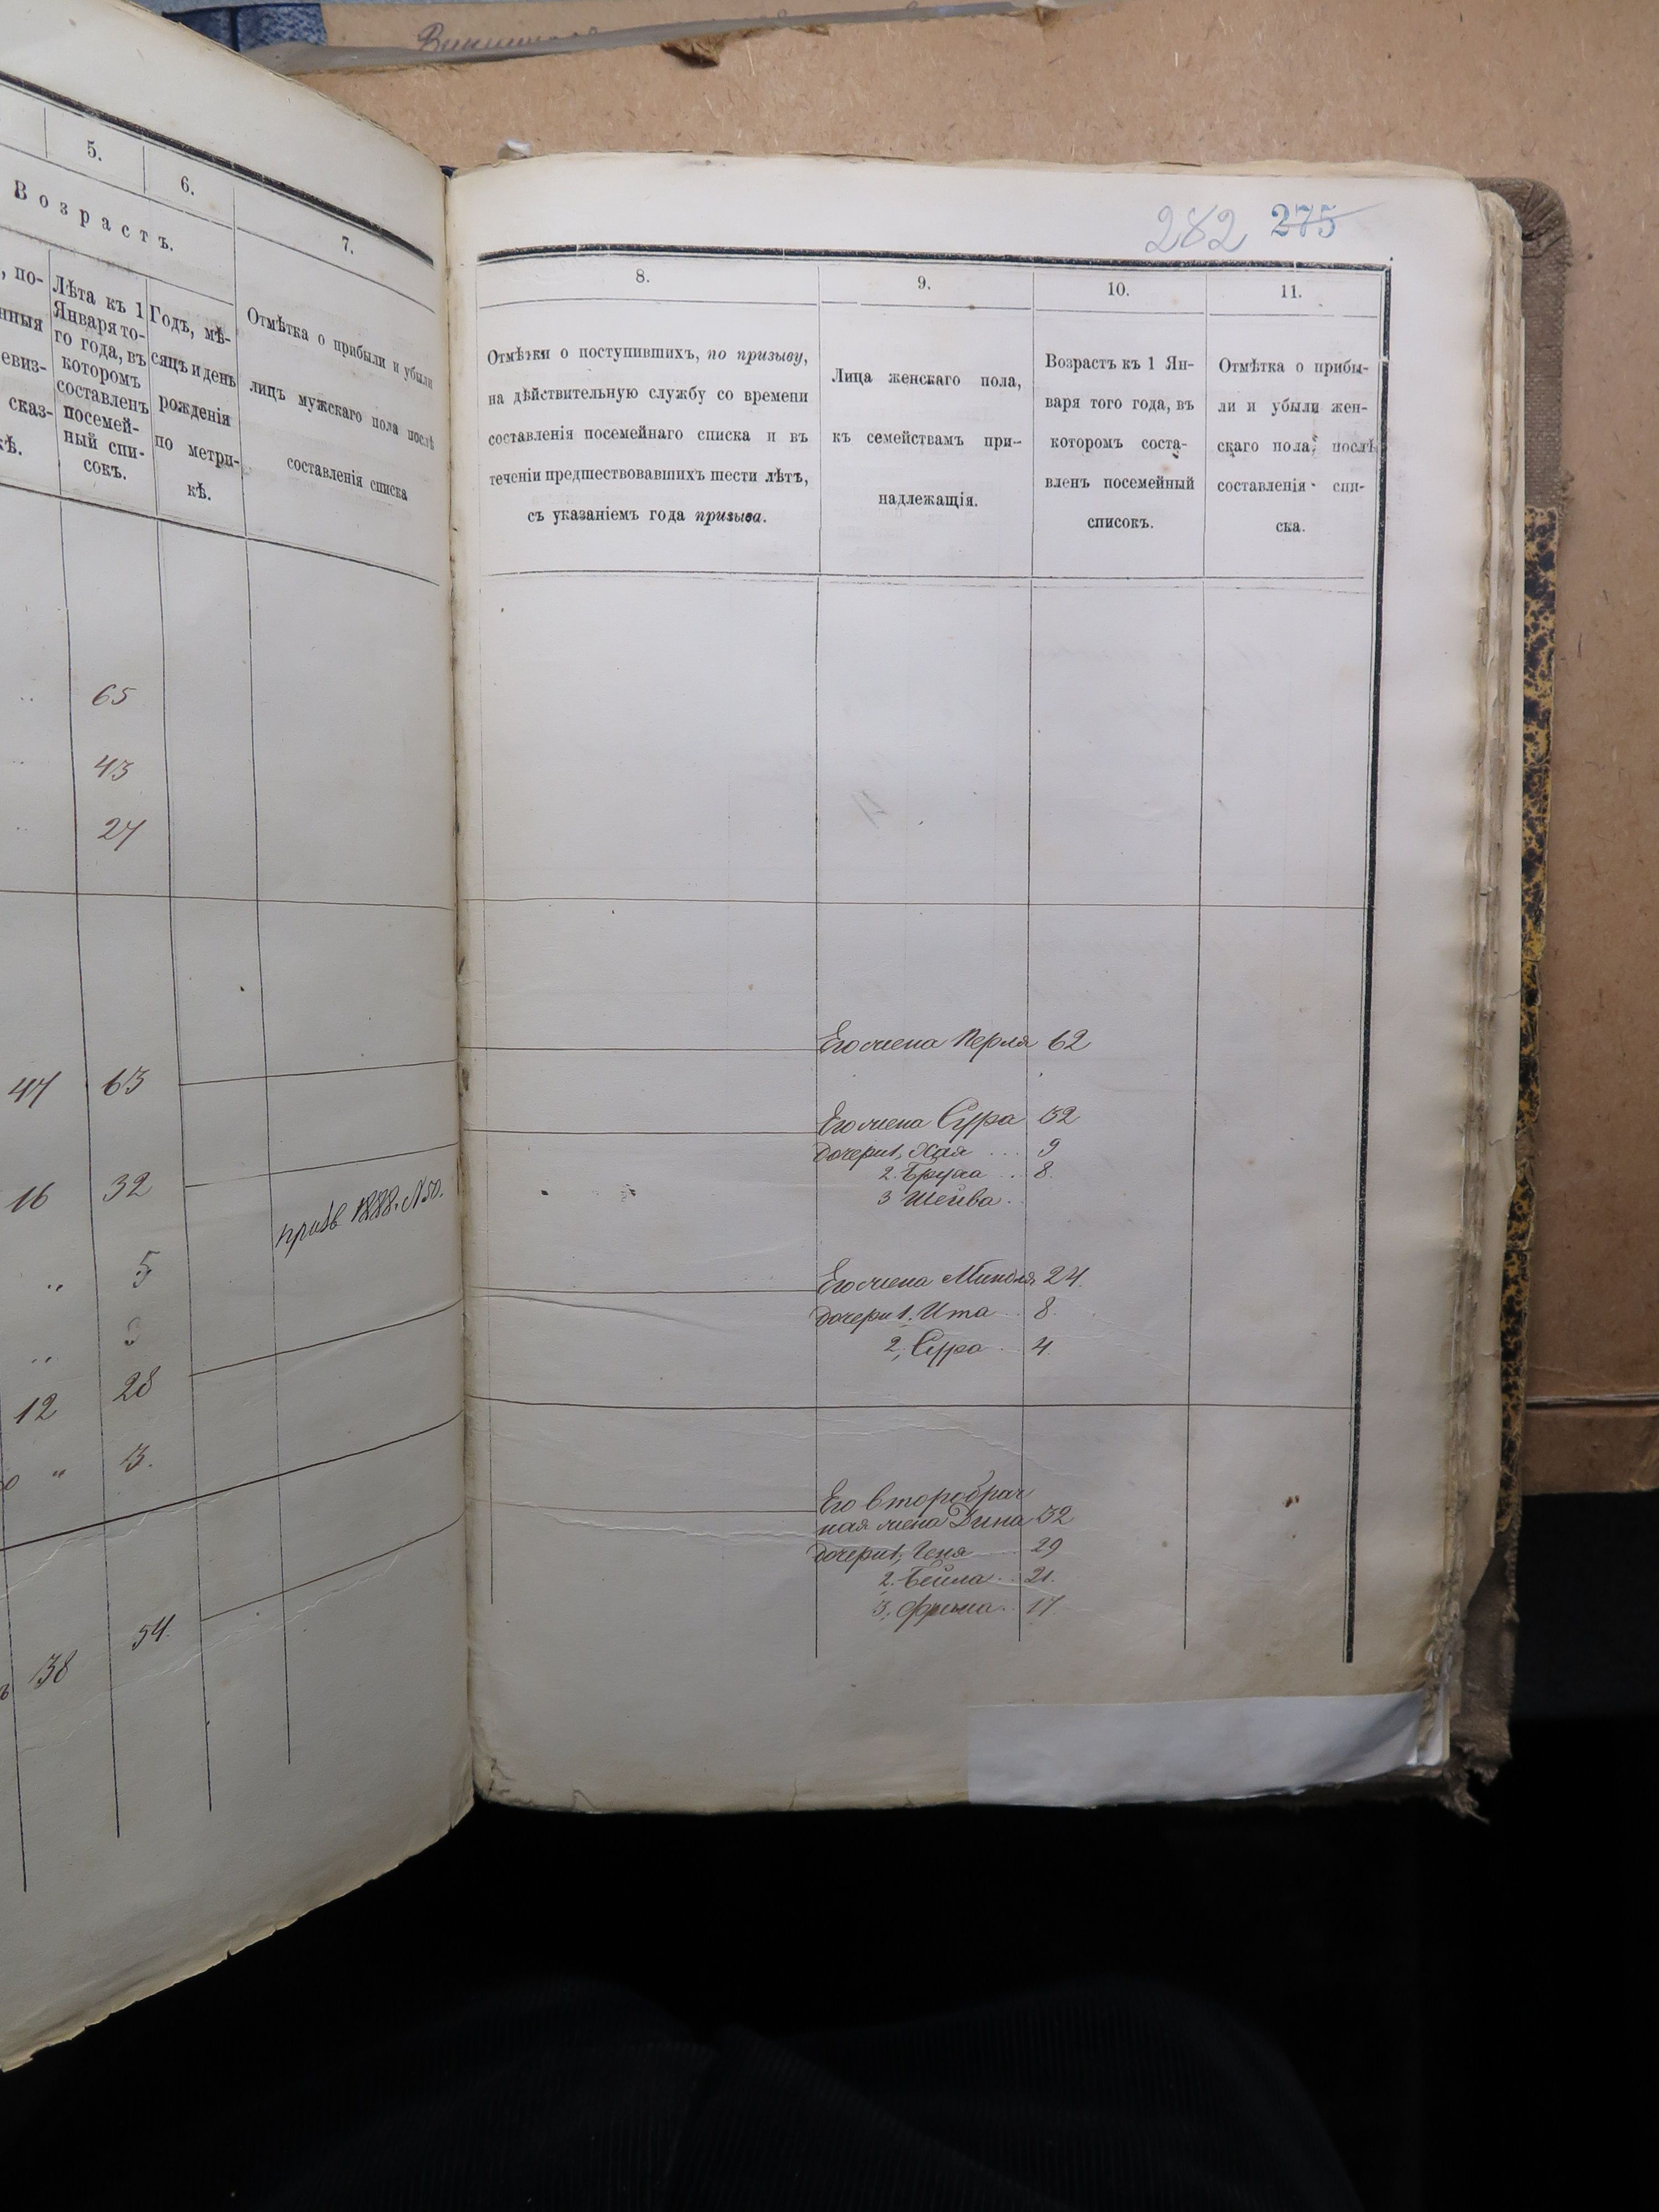 5.
6.
7.
Возрастъ.
, по-
нныя
евиз-
сказ-
кѣ.
Лѣта къ 1
Января то-
го года, въ
которомъ
составленъ
посемей-
ный спи-
сокъ.
Годъ, мѣ-
сяцъ и день
рожденія
по метри-
кѣ.
Отмѣтка о прибыли и убыли
лицъ мужскаго пола послѣ
составленія списка
65
43
27
47 63
16 32
прив 1888. N50.
5
3
12 28
3.
38 54.
282 275
8.
9.
10.
11.
Отмѣтки о поступившихъ, по призыву,
на дѣйствительную службу со времени
составленія посемейнаго списка и въ
теченіи предшествовавшихъ шести лѣтъ,
съ указаніемъ года призыва.
Лица женскаго пола,
къ семействамъ при-
надлежащія.
Возрастъ къ 1 Ян-
варя того года, въ
которомъ соста-
вленъ посемейный
списокъ.
Отмѣтка о прибы-
ли и убыли жен-
скаго пола, послѣ
составленія спи-
ска.
Его жена Перля 62
Его жена Сура 32
дочери 1, Хая ... 9
2. Бруха .. 8.
3 Шейва.
Его жена Миндля 24.
дочери 1. Ита .. 8.
2, Сура . 4.
Его второбрач
ная жена Дина 32
дочери 1, Геня 29
2. Бейла .. 21.
3. Фрима .. 17